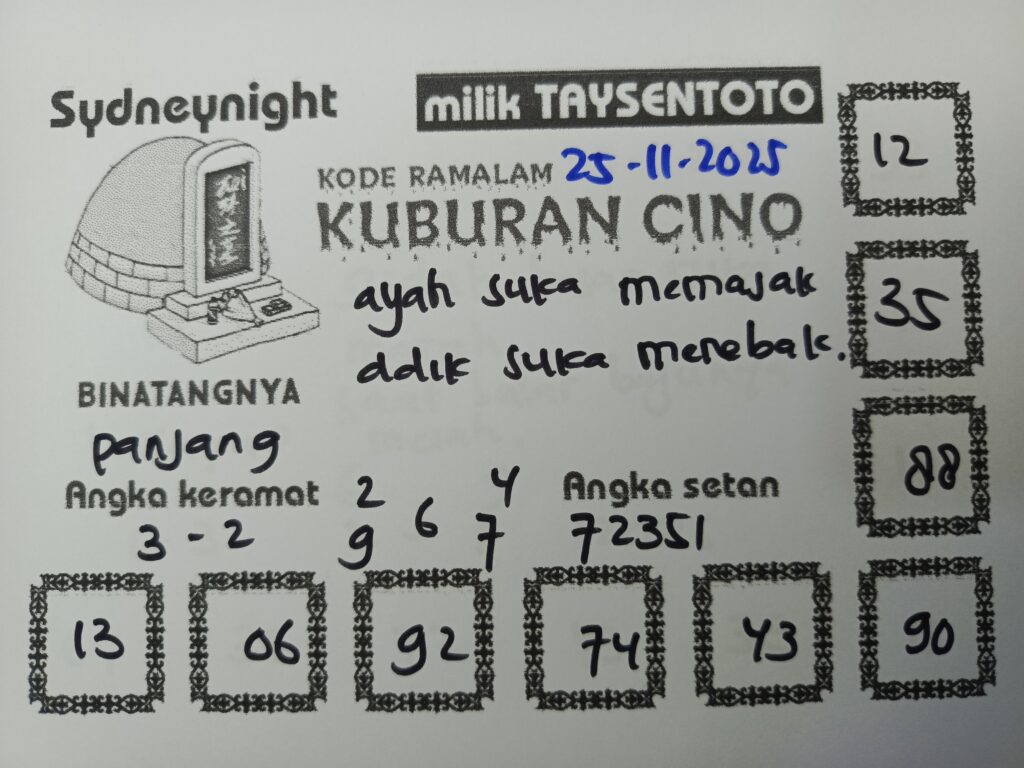 Sydneynight
milik TAYSENTOTO
KODE RAMALAM 25-11-2025
KUBURAN CINO
ayah suka memasak
adik suka menebak.
BINATANGNYA
panjang
Angka keramat
3 - 2
2 4
6
9 7
Angka setan
72351
12
35
88
13 06 92 74 43 90